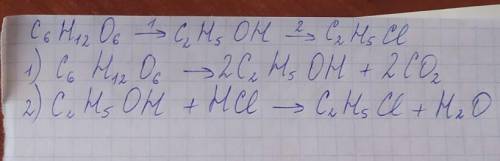 C₆H₁₂O₆ →¹ C₂H₅OH →² C₂H₅Cl
1) C₆H₁₂O₆ → 2C₂H₅OH + 2CO₂
2) C₂H₅OH + HCl → C₂H₅Cl + H₂O